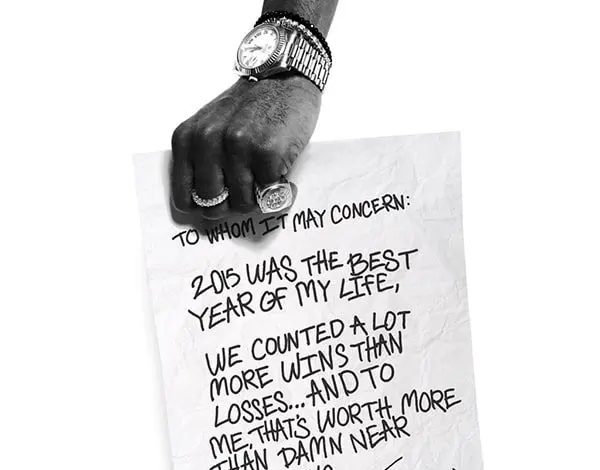 TO WHOM IT MAY CONCERN:
2015 WAS THE BEST
YEAR OF MY LIFE,
WE COUNTED A LOT
MORE WINS THAN
LOSSES...AND TO
ME, THAT'S WORTH MORE
THAN DAMN NEAR